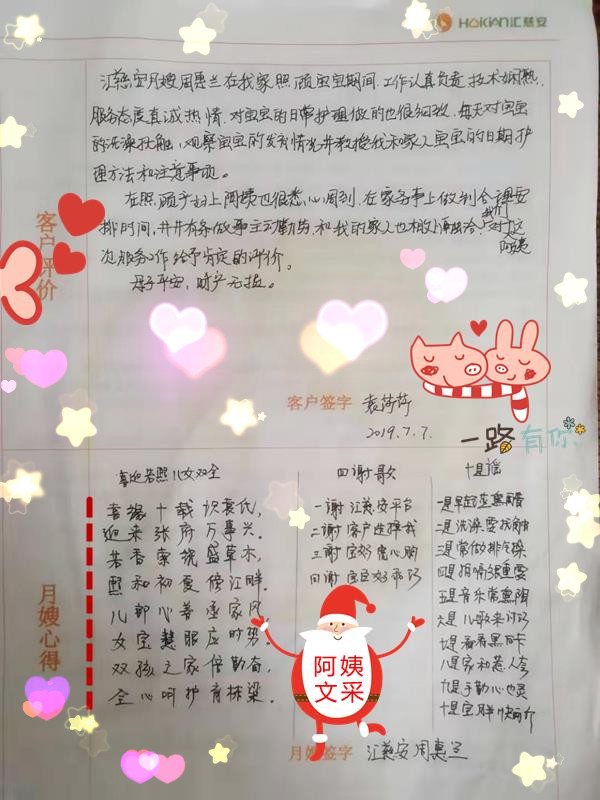 HOKIAN汇慈安
汇慈安月嫂周惠兰在我家照顾宝宝期间工作认真负责技术娴熟
服务态度真诚热情.对宝宝的日常护理做的也很细致.每天对宝宝
的洗澡抚触,观察宝宝的发育情况并教授我和家人宝宝的日常护
理方法和注意事项。
在照顾产妇上阿姨也很悉心周到.在家务事上做到合理安
排时间.井井有条做事主动勤劳.和我的家人也相处融洽.我们对这
次服务工作给予肯定的评价。
阿姨
母子平安,财产无损。
客户评价
客户签字 袁莎莎
2019.7.7.
一路有你
喜迎若熙儿女双全
喜缘十载识袁氏,
迎来张府万事兴。
若香萦绕盛草木,
熙和初夏倚江畔。
儿郎心善承家风
女宝慧眼应时势。
双孩之家倍勤奋,
全心呵护育栋梁。
四谢歌
一谢汇慈安平台
二谢客户选择我
三谢宝妈贴心胸
四谢宝宝好乖巧
十是谣
一是早起查黑眼圈
二是洗澡要抚触
三是常做排气操
四是拍嗝很重要
五是音乐常熏陶
六是儿歌来问好
七是看看黑白卡
八是家和惹人夸
九是手勤心也灵
十是宝
月嫂心得
阿姨
文采
月嫂签字 汇慈安周惠兰